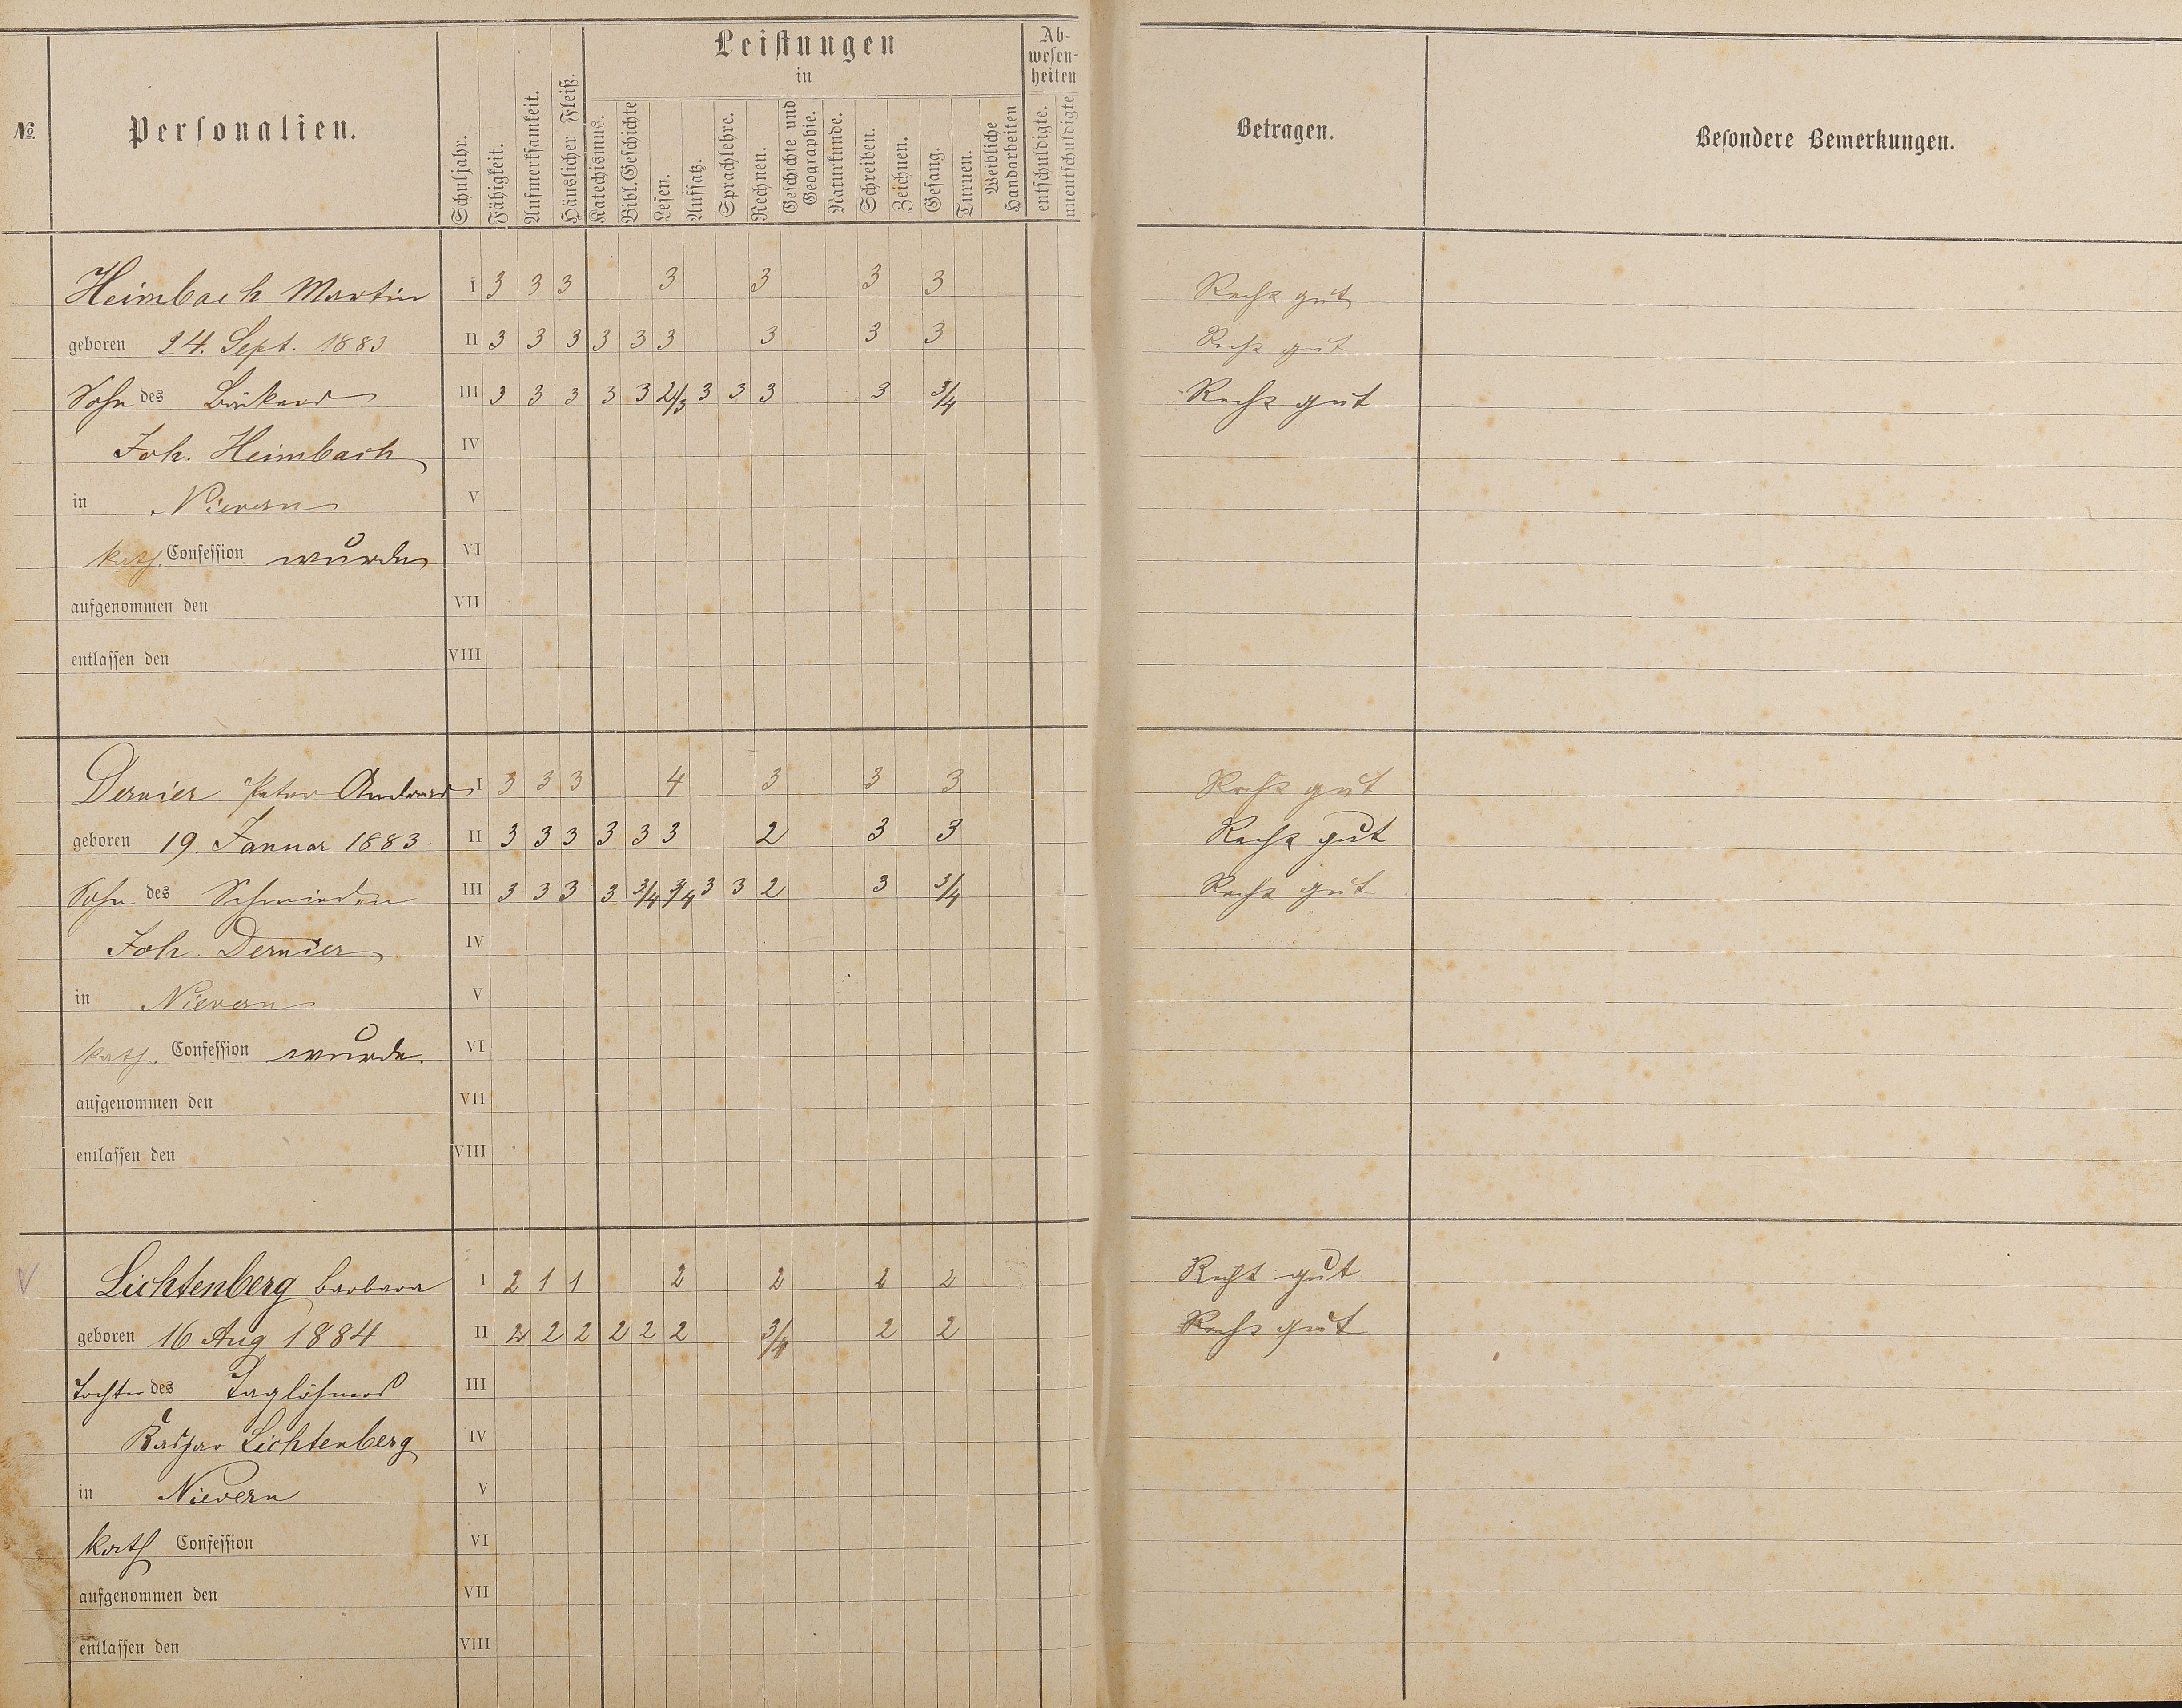 Leistungen
in
Ab-
wesen-
heiten
№.
Personalien.
Schuljahr.
Fähigkeit.
Aufmerksamkeit.
Häuslicher Fleiß.
Katechismus.
Bibl. Geschichte
Lesen.
Aufsatz.
Sprachlehre.
Rechnen.
Geschichte und
Geographie.
Naturkunde.
Schreiben.
Zeichnen.
Gesang.
Turnen.
Weibliche
Handarbeiten
entschuldigte.
unentschuldigte
Betragen.
Besondere Bemerkungen.
Heimbach Martin I 3 3 3 3 3 3 3 Recht gut
geboren 24. Sept. 1883 II 3 3 3 3 3 3 3 3 3 Recht gut
Sohn des Bäckers III 3 3 3 3 3 2/3 3 3 3 3 3/4 Recht gut
Joh. Heimbach IV
in Nievern V
kath. Confession wurde VI
aufgenommen den VII
entlassen den VIII
Dernier Peter Andreas I 3 3 3 4 3 3 3 Recht gut
geboren 19. Januar 1883 II 3 3 3 3 3 3 2 3 3 Recht gut
Sohn des Schmieden III 3 3 3 3 3/4 3/4 3 3 2 3 3/4 Recht gut
Joh. Dernier IV
in Nievern V
kath. Confession wurde. VI
aufgenommen den VII
entlassen den VIII
V Lichtenberg Barbara I 2 1 1 2 2 2 2 Recht gut
geboren 16 Aug 1884 II 2 2 2 2 2 2 3/4 2 2 Recht gut
Tochter des Taglöhners III
Kaspar Lichtenberg IV
in Nievern V
kath Confession VI
aufgenommen den VII
entlassen den VIII